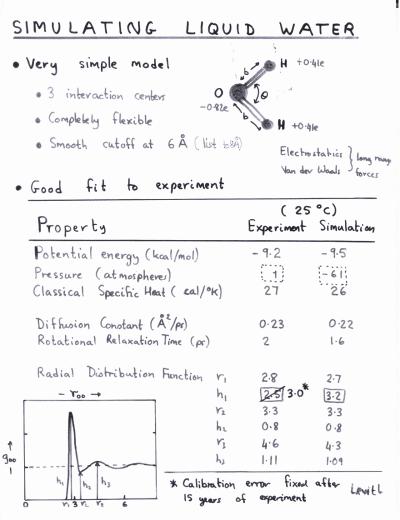 SIMULATING LIQUID WATER
• Very simple model
• 3 interaction centers
• Completely flexible
• Smooth cutoff at 6 Å (list to 8Å)
H +0.41e
b
O
θ
-0.82e
b
H +0.41e
Electrostatics } long range
Van der Waals } forces
• Good fit to experiment
(25 °C)
Property Experiment Simulation
Potential energy (kcal/mol) -9.2 -9.5
Pressure (atmospheres) 1 -61
Classical Specific Heat (cal/°K) 27 26
Diffusion Constant (Å²/ps) 0.23 0.22
Rotational Relaxation Time (ps) 2 1.6
Radial Distribution Function r₁ 2.8 2.7
h₁ 2.5 3.0* 3.2
r₂ 3.3 3.3
h₂ 0.8 0.8
r₃ 4.6 4.3
h₃ 1.11 1.09
- roo →
↑
goo
1
h₁ h₂ h₃
0 r₁ 3 r₂ r₃ 6
* Calibration error fixed after
15 years of experiment
Levitt